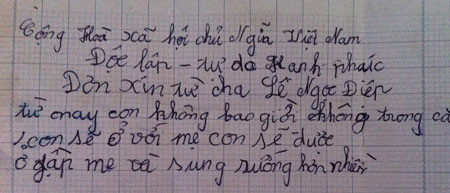 Cộng Hoà xã hội chủ Ngiã Việt Nam
Độc lập - tự do Hanh phúic
Đơn xin từ cha Lê Ngọc Điệp
từ nay con không bao giời không trong cả
con sẽ ở với mẹ con sẽ được
ở gần mẹ và sung sướng hơn nhiền